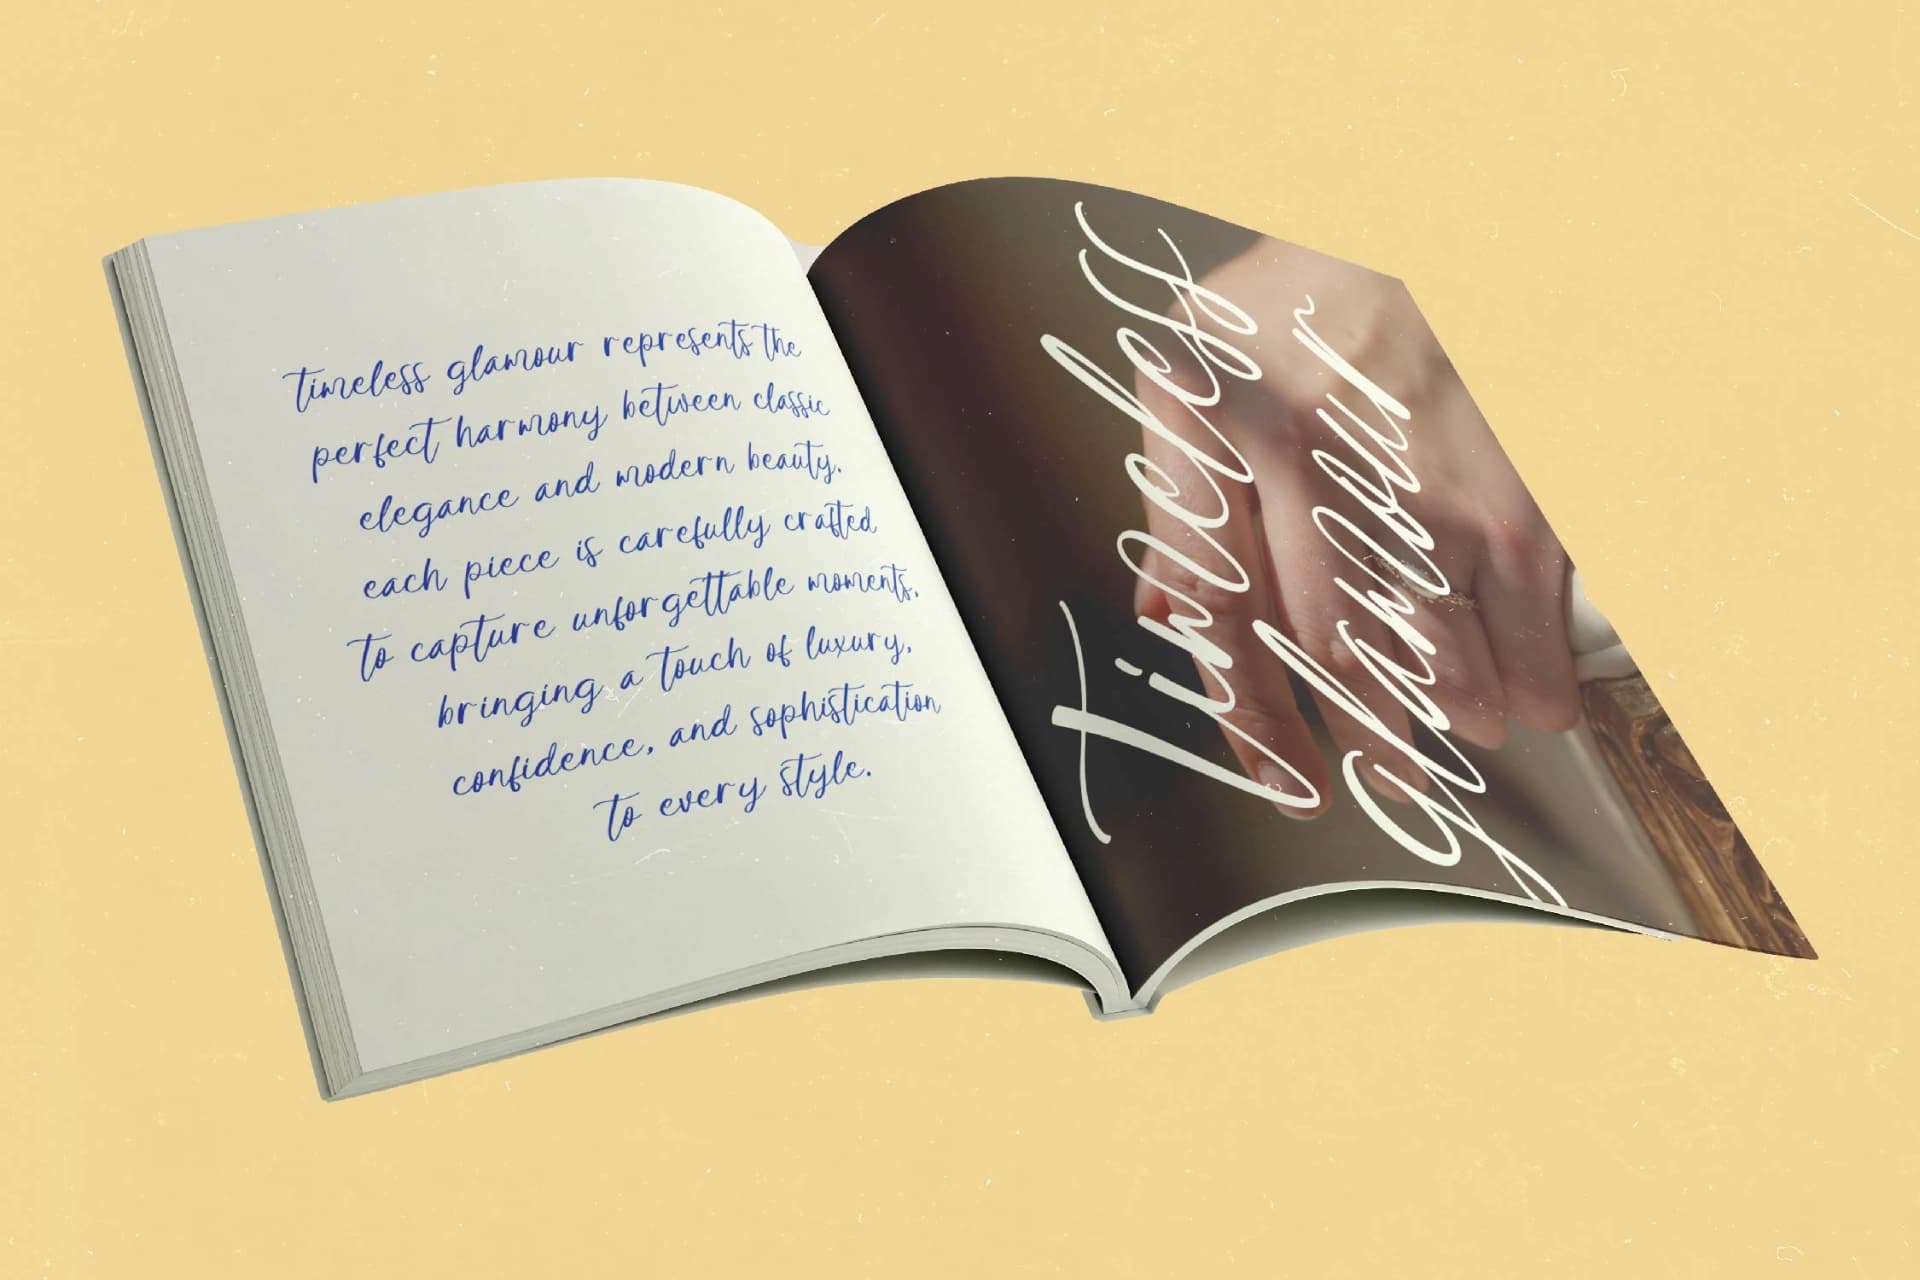 timeless glamour represents the
perfect harmony between classic
elegance and modern beauty.
each piece is carefully crafted
to capture unforgettable moments,
bringing a touch of luxury,
confidence, and sophistication
to every style.
Timeless
glamour